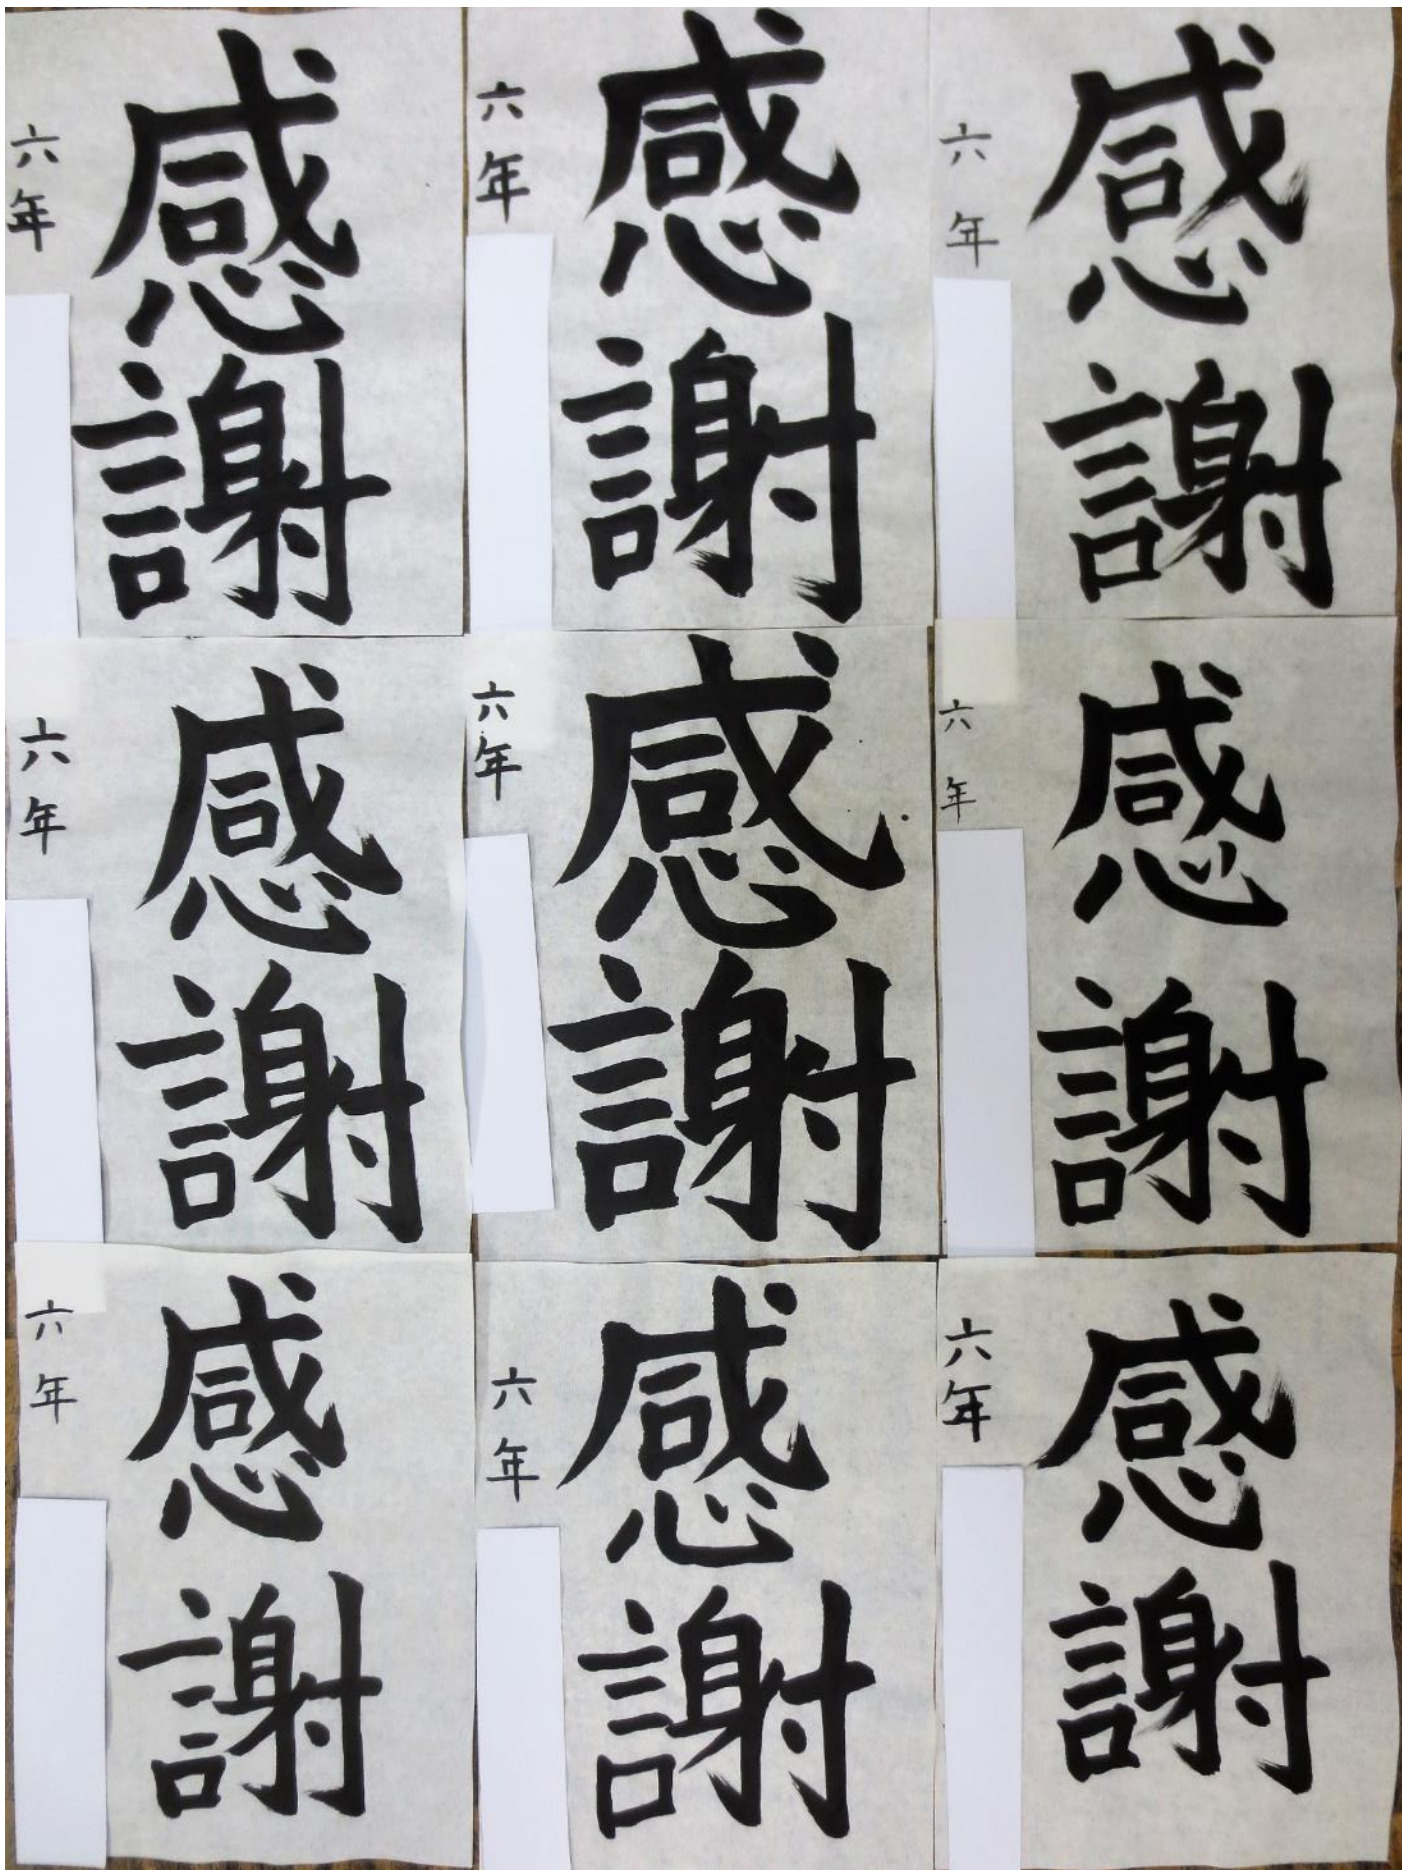 感謝
六年
感謝
六年
感謝
六年
感謝
六年
感謝
六年
感謝
六年
感謝
六年
感謝
六年
感謝
六年